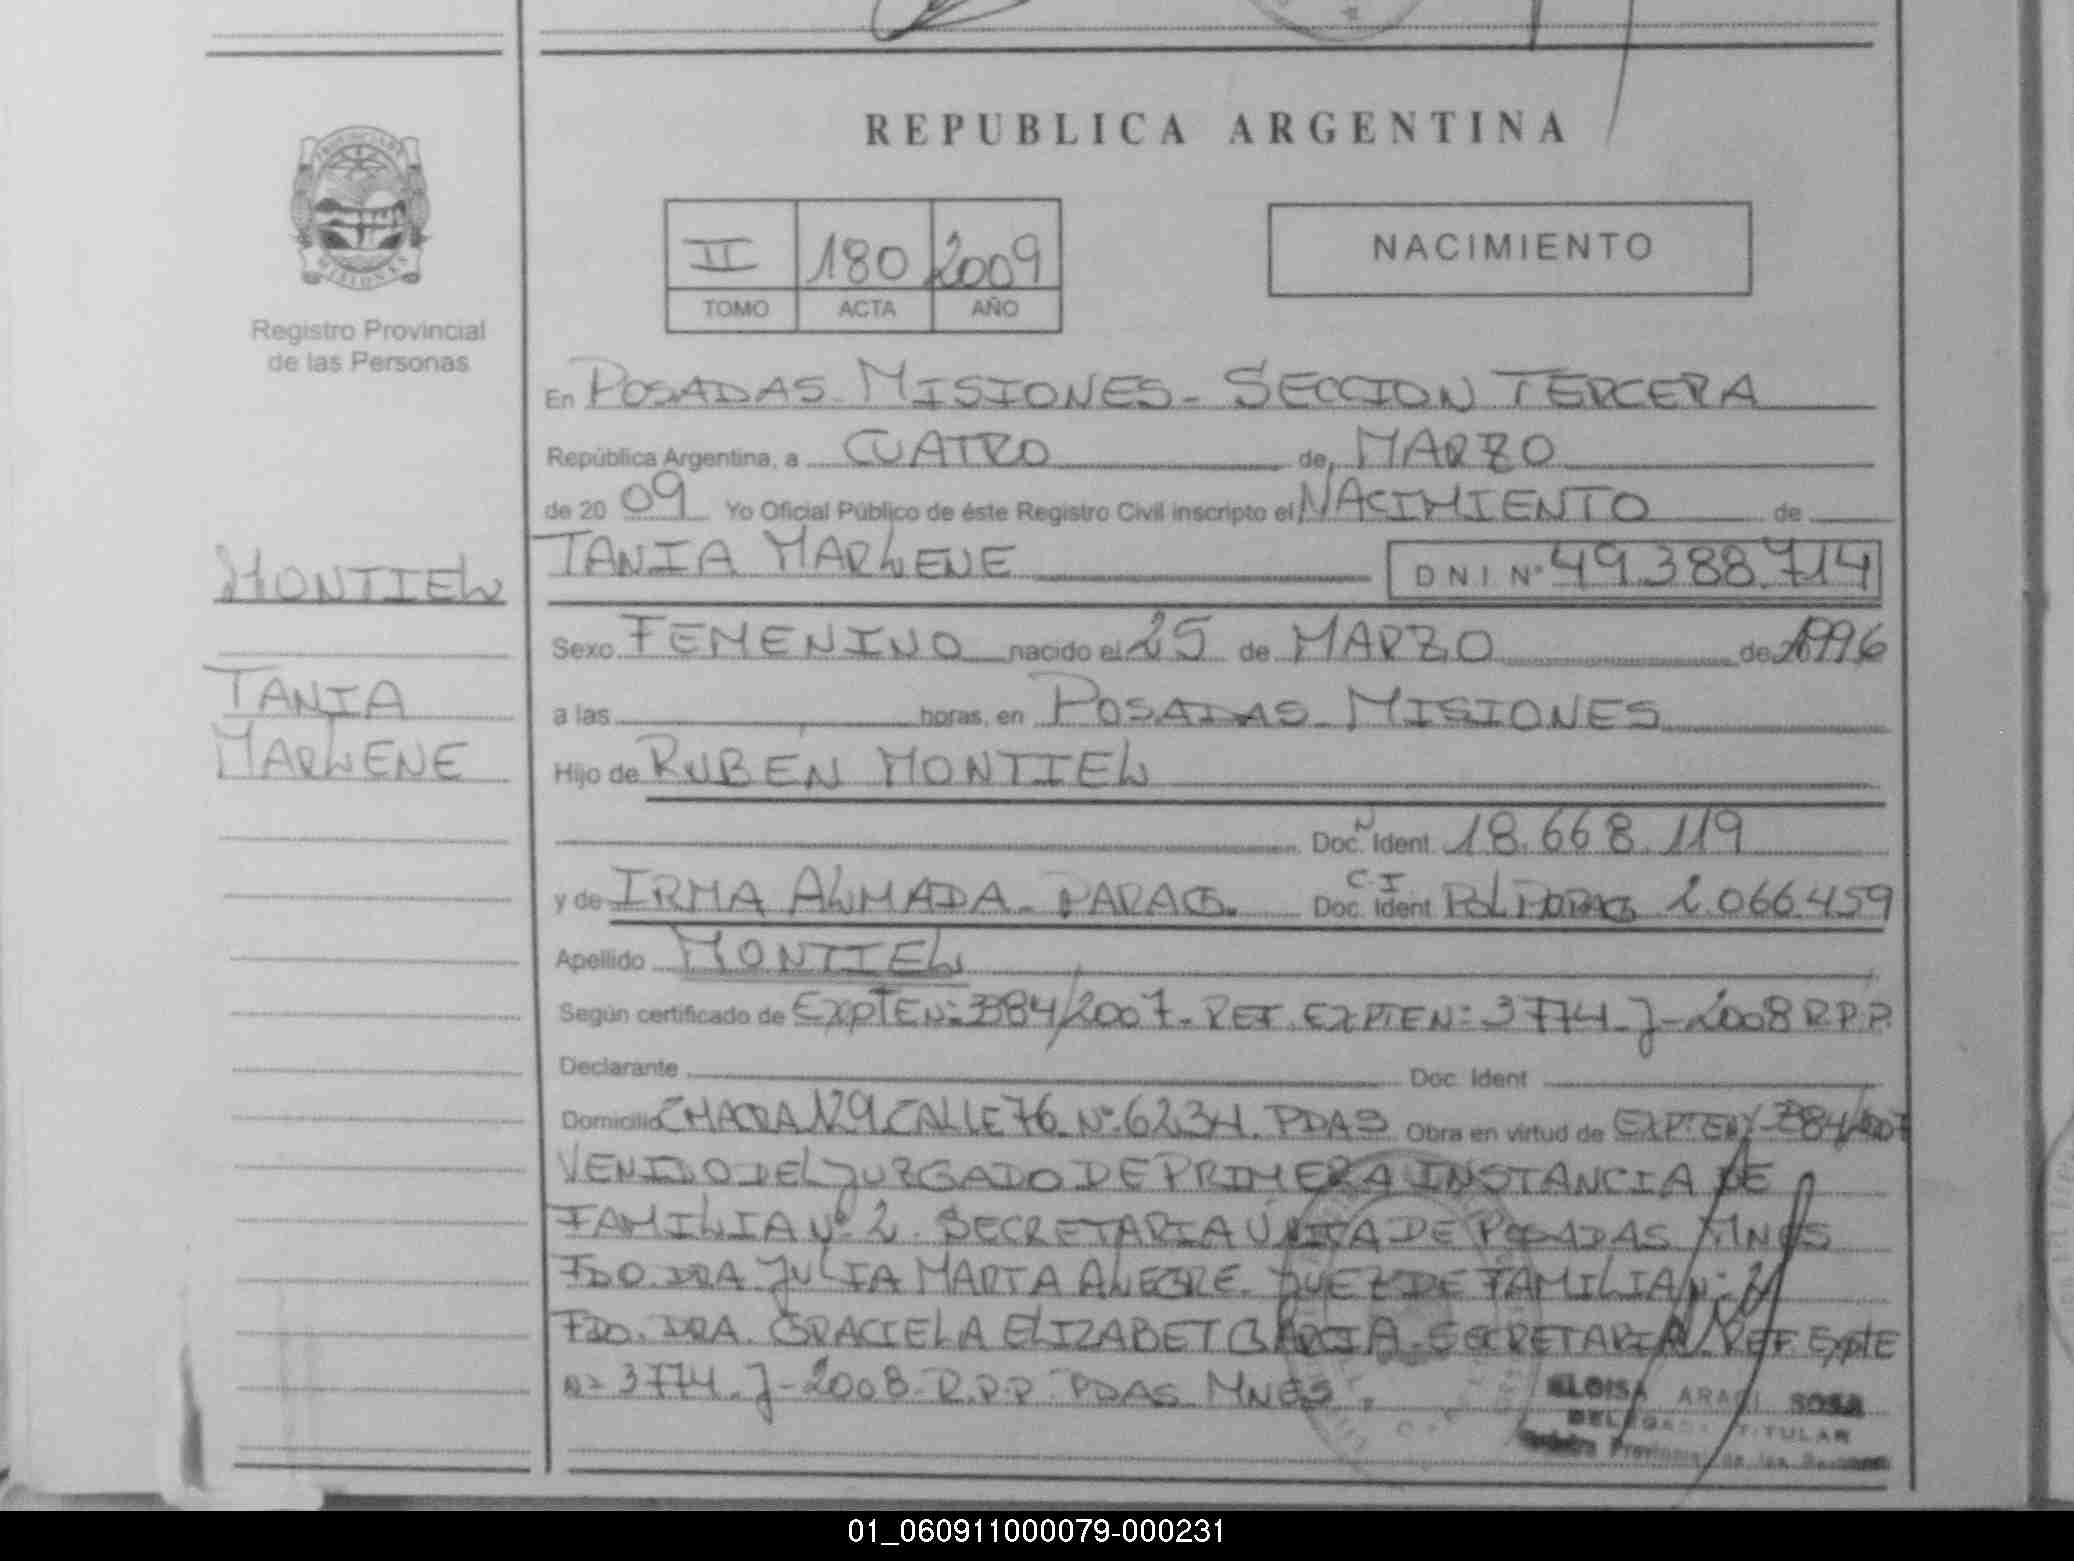 REPUBLICA ARGENTINA
II 180 2009
TOMO ACTA AÑO
NACIMIENTO
PROVINCIA DE
MISIONES
Registro Provincial
de las Personas
En POSADAS. MISIONES - SECCION TERCERA
República Argentina, a CUATRO de MARZO
de 20 09 Yo Oficial Público de éste Registro Civil inscripto el NACIMIENTO de
MONTIEL
TANIA MARLENE DNI Nº 49.388.714
Sexo FEMENINO nacido el 25 de MARZO de 1996
TANIA
MARLENE
a las horas, en POSADAS. MISIONES
Hijo de RUBEN MONTIEL
Doc. Ident. 18.668.119
y de IRMA ALMADA. PARAG. C.I Doc. Ident POL PARAG 2.066.459
Apellido MONTIEL
Según certificado de EXPTE Nº 384/2007. REF. EXPTE Nº 3774-J-2008 R.P.P.
Declarante Doc. Ident
Domicilio CHACRA 129 CALLE 76 Nº 6234. PDAS Obra en virtud de EXPTE Nº 384/2007
VENIDO DEL JUZGADO DE PRIMERA INSTANCIA DE
FAMILIA Nº 2. SECRETARIA UNICA DE POSADAS MNES
FDO. DRA JULIA MARTA ALEGRE. JUEZ DE FAMILIA Nº 2
FDO. DRA. GRACIELA ELIZABET GARCIA. SECRETARIA. REF. Expte
Nº 3774-J-2008. R.P.P. PDAS MNES.
ELOISA ARACI SOSA
DELEGADA TITULAR
Registro Provincial de las Personas
01_060911000079-000231